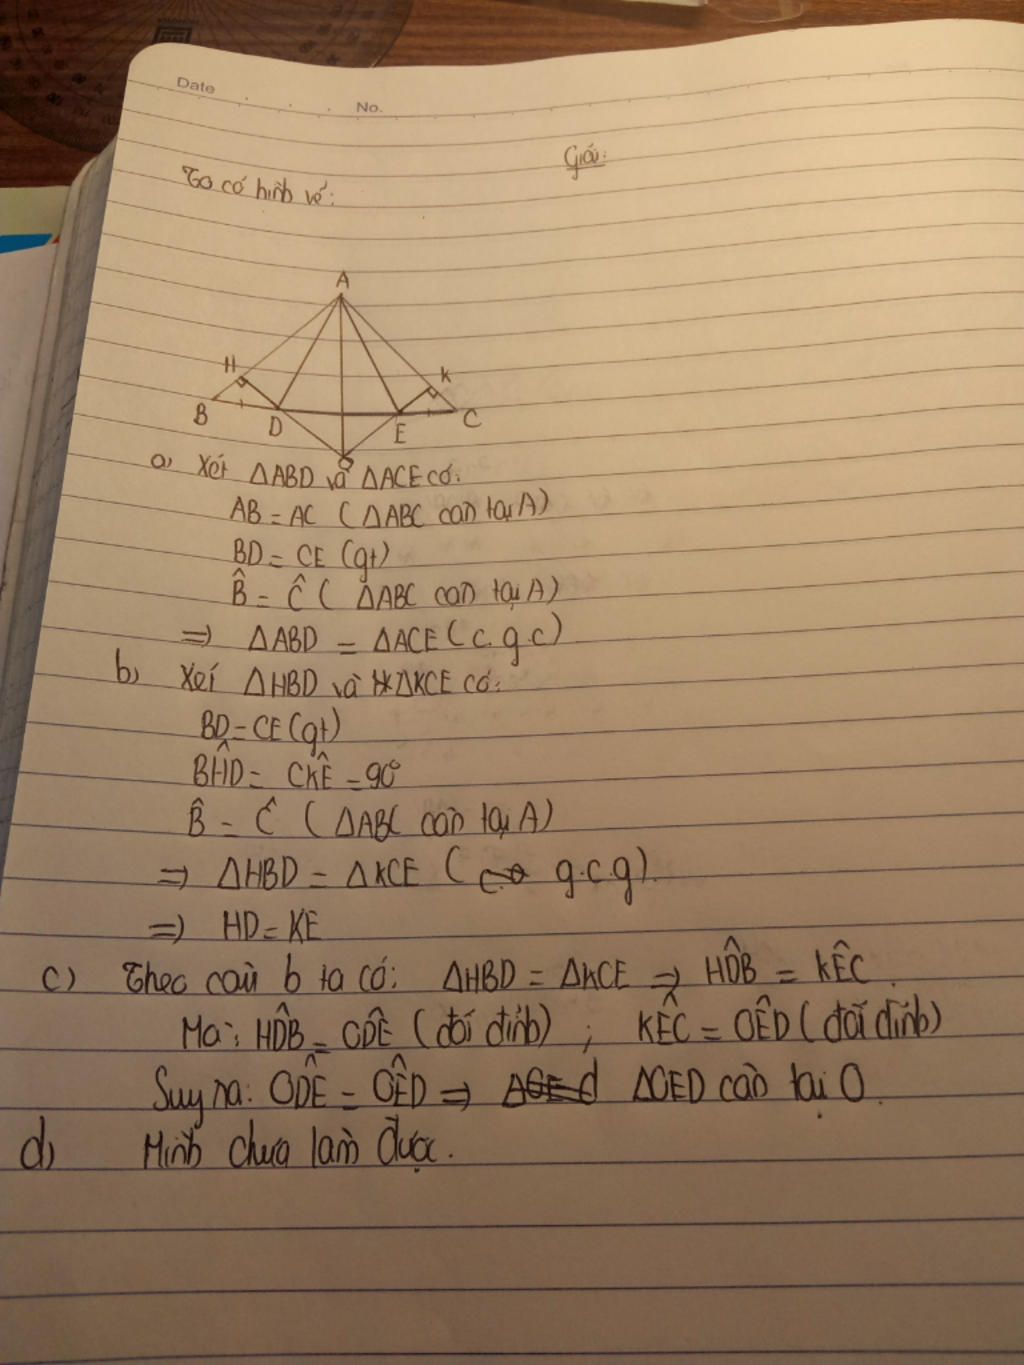 Date
No.
Giải:
Ta có hình vẽ:
A
H
K
B
D
E
C
O
a) Xét ΔABD và ΔACE có:
AB = AC (ΔABC cân tại A)
BD = CE (gt)
B̂ = Ĉ (ΔABC cân tại A)
=> ΔABD = ΔACE (c.g.c)
b) Xét ΔHBD và ΔKCE có:
BD = CE (gt)
BĤD = CK̂E = 90°
B̂ = Ĉ (ΔABC cân tại A)
=> ΔHBD = ΔKCE (g.c.g).
=> HD = KE
c) Theo câu b ta có: ΔHBD = ΔKCE => HD̂B = KÊC.
Mà: HD̂B = OD̂E (đối đỉnh) ; KÊC = OÊD (đối đỉnh)
Suy ra: OD̂E = OÊD => ΔOED cân tại O.
d) Mình chưa làm được.